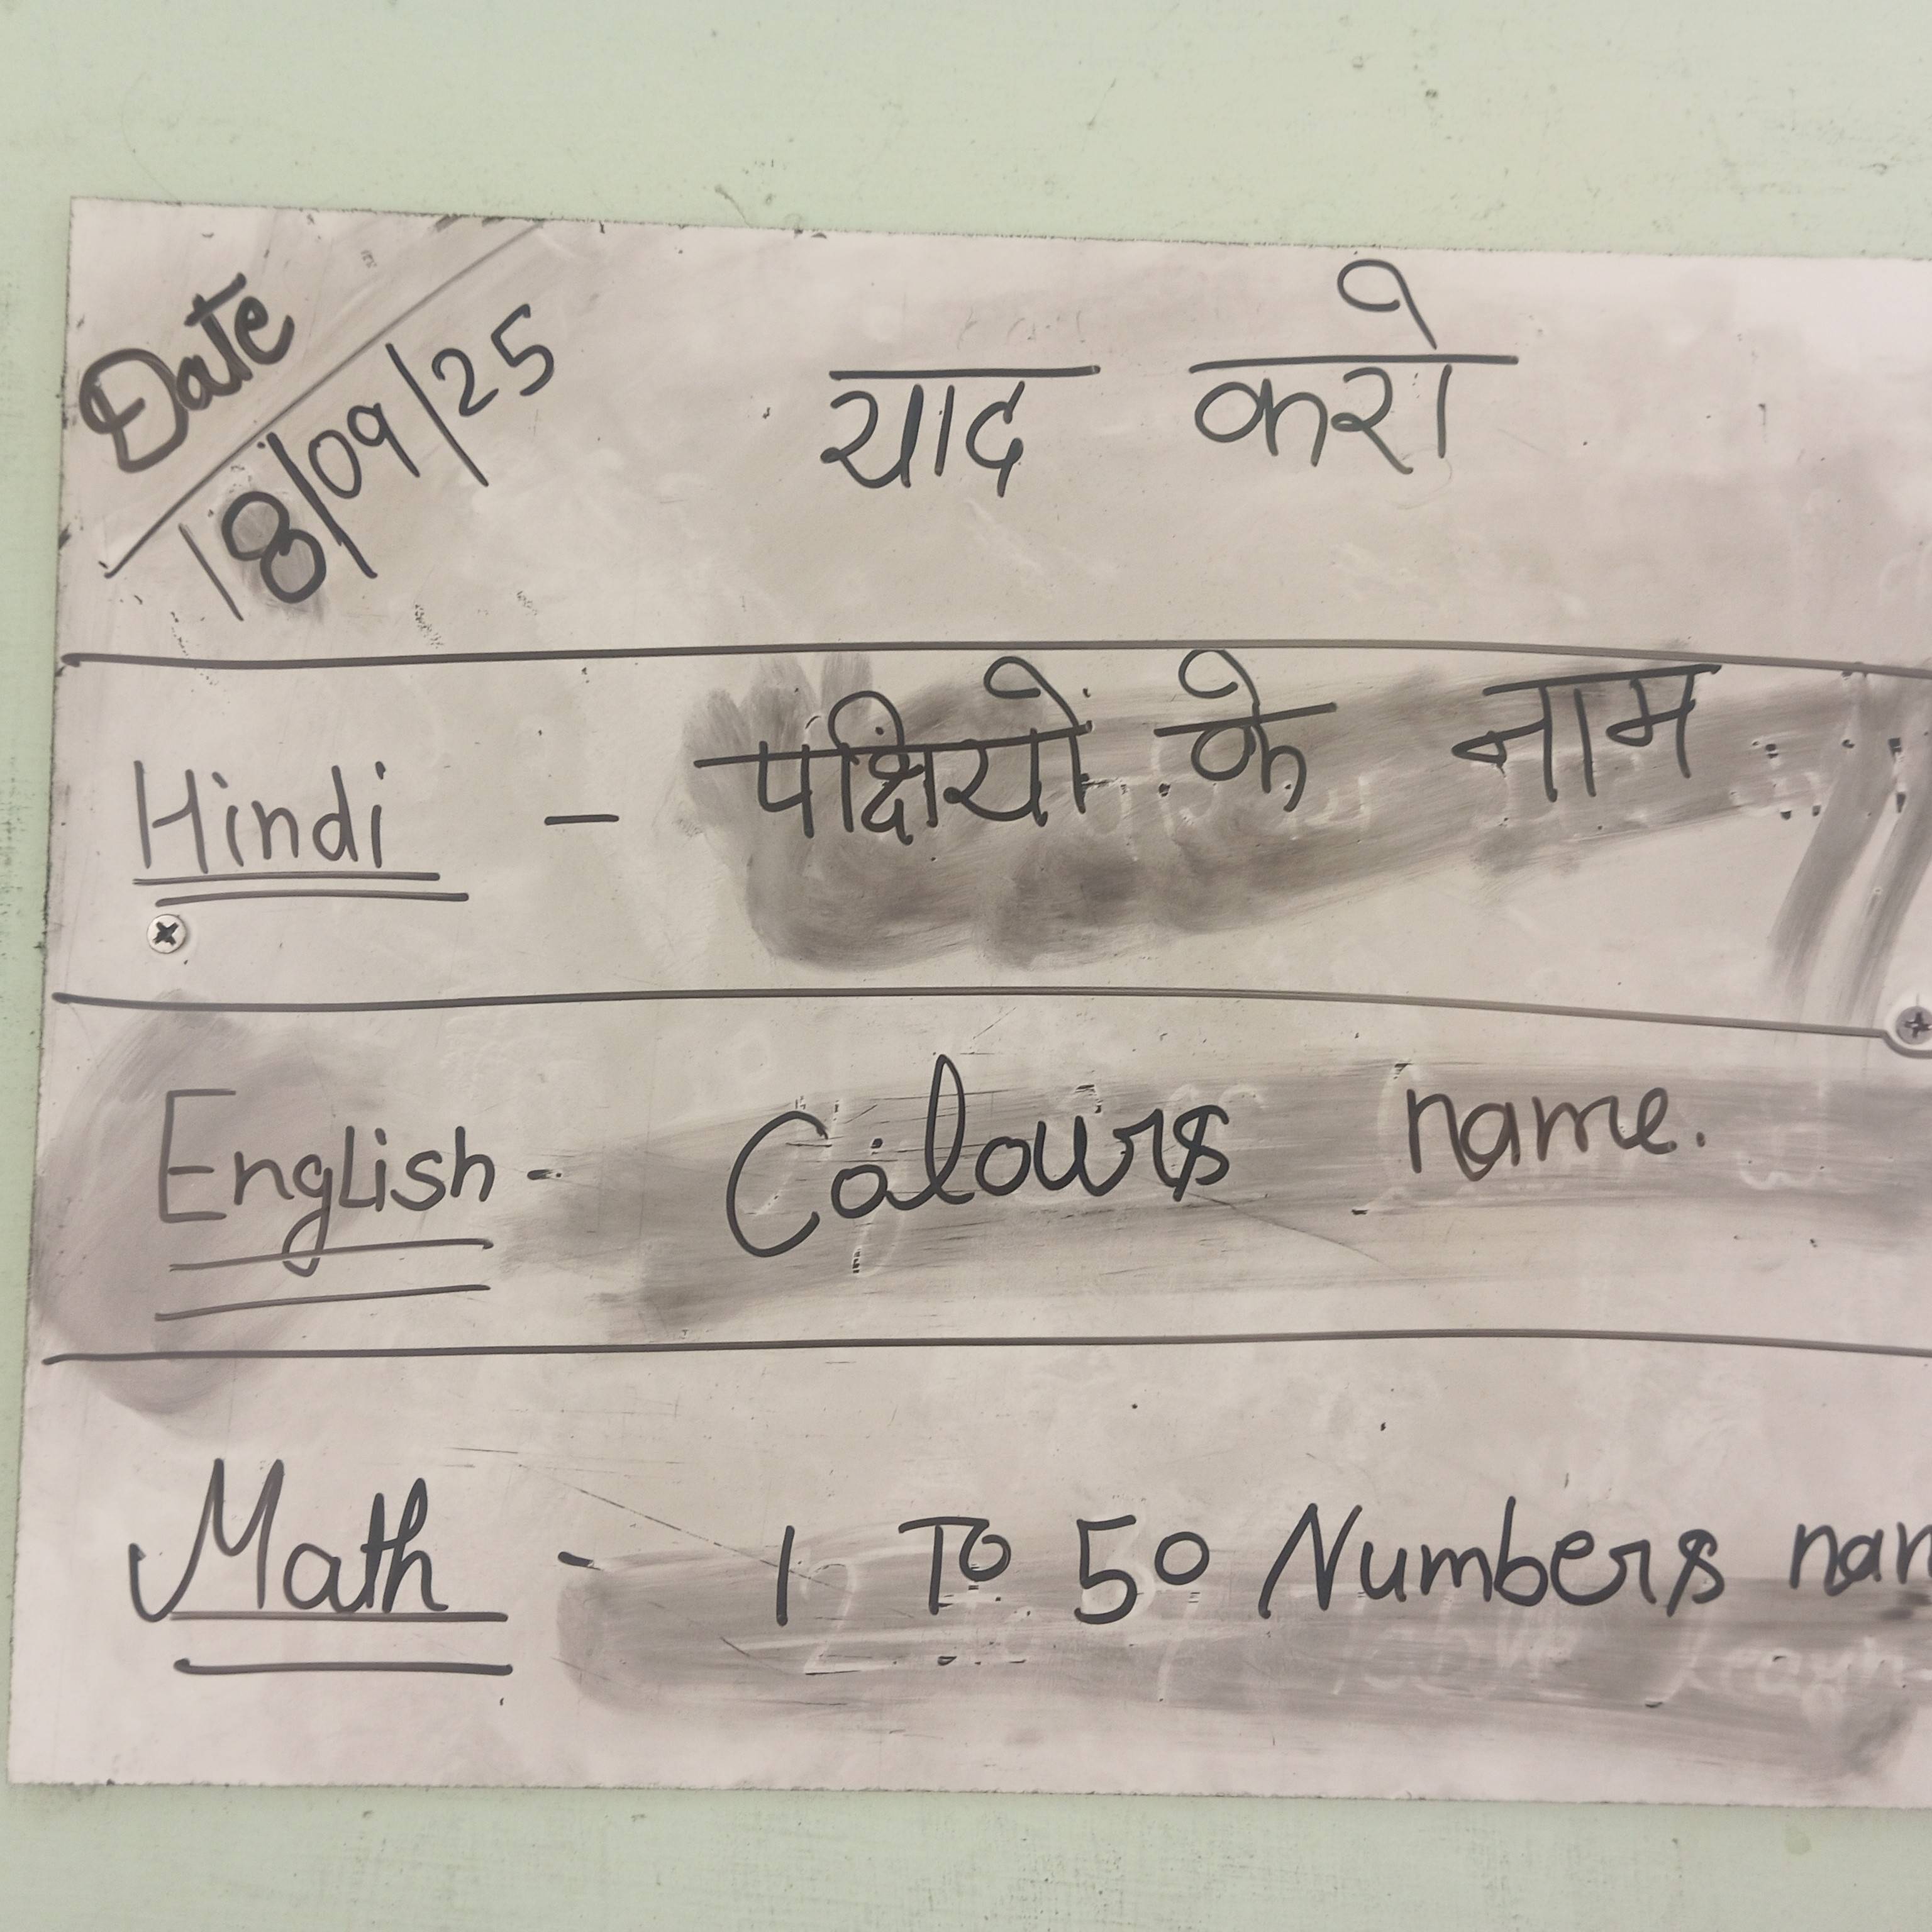 Date
18/09/25
याद करो
Hindi - पक्षियों के नाम
English - Colours name.
Math - 1 To 50 Numbers